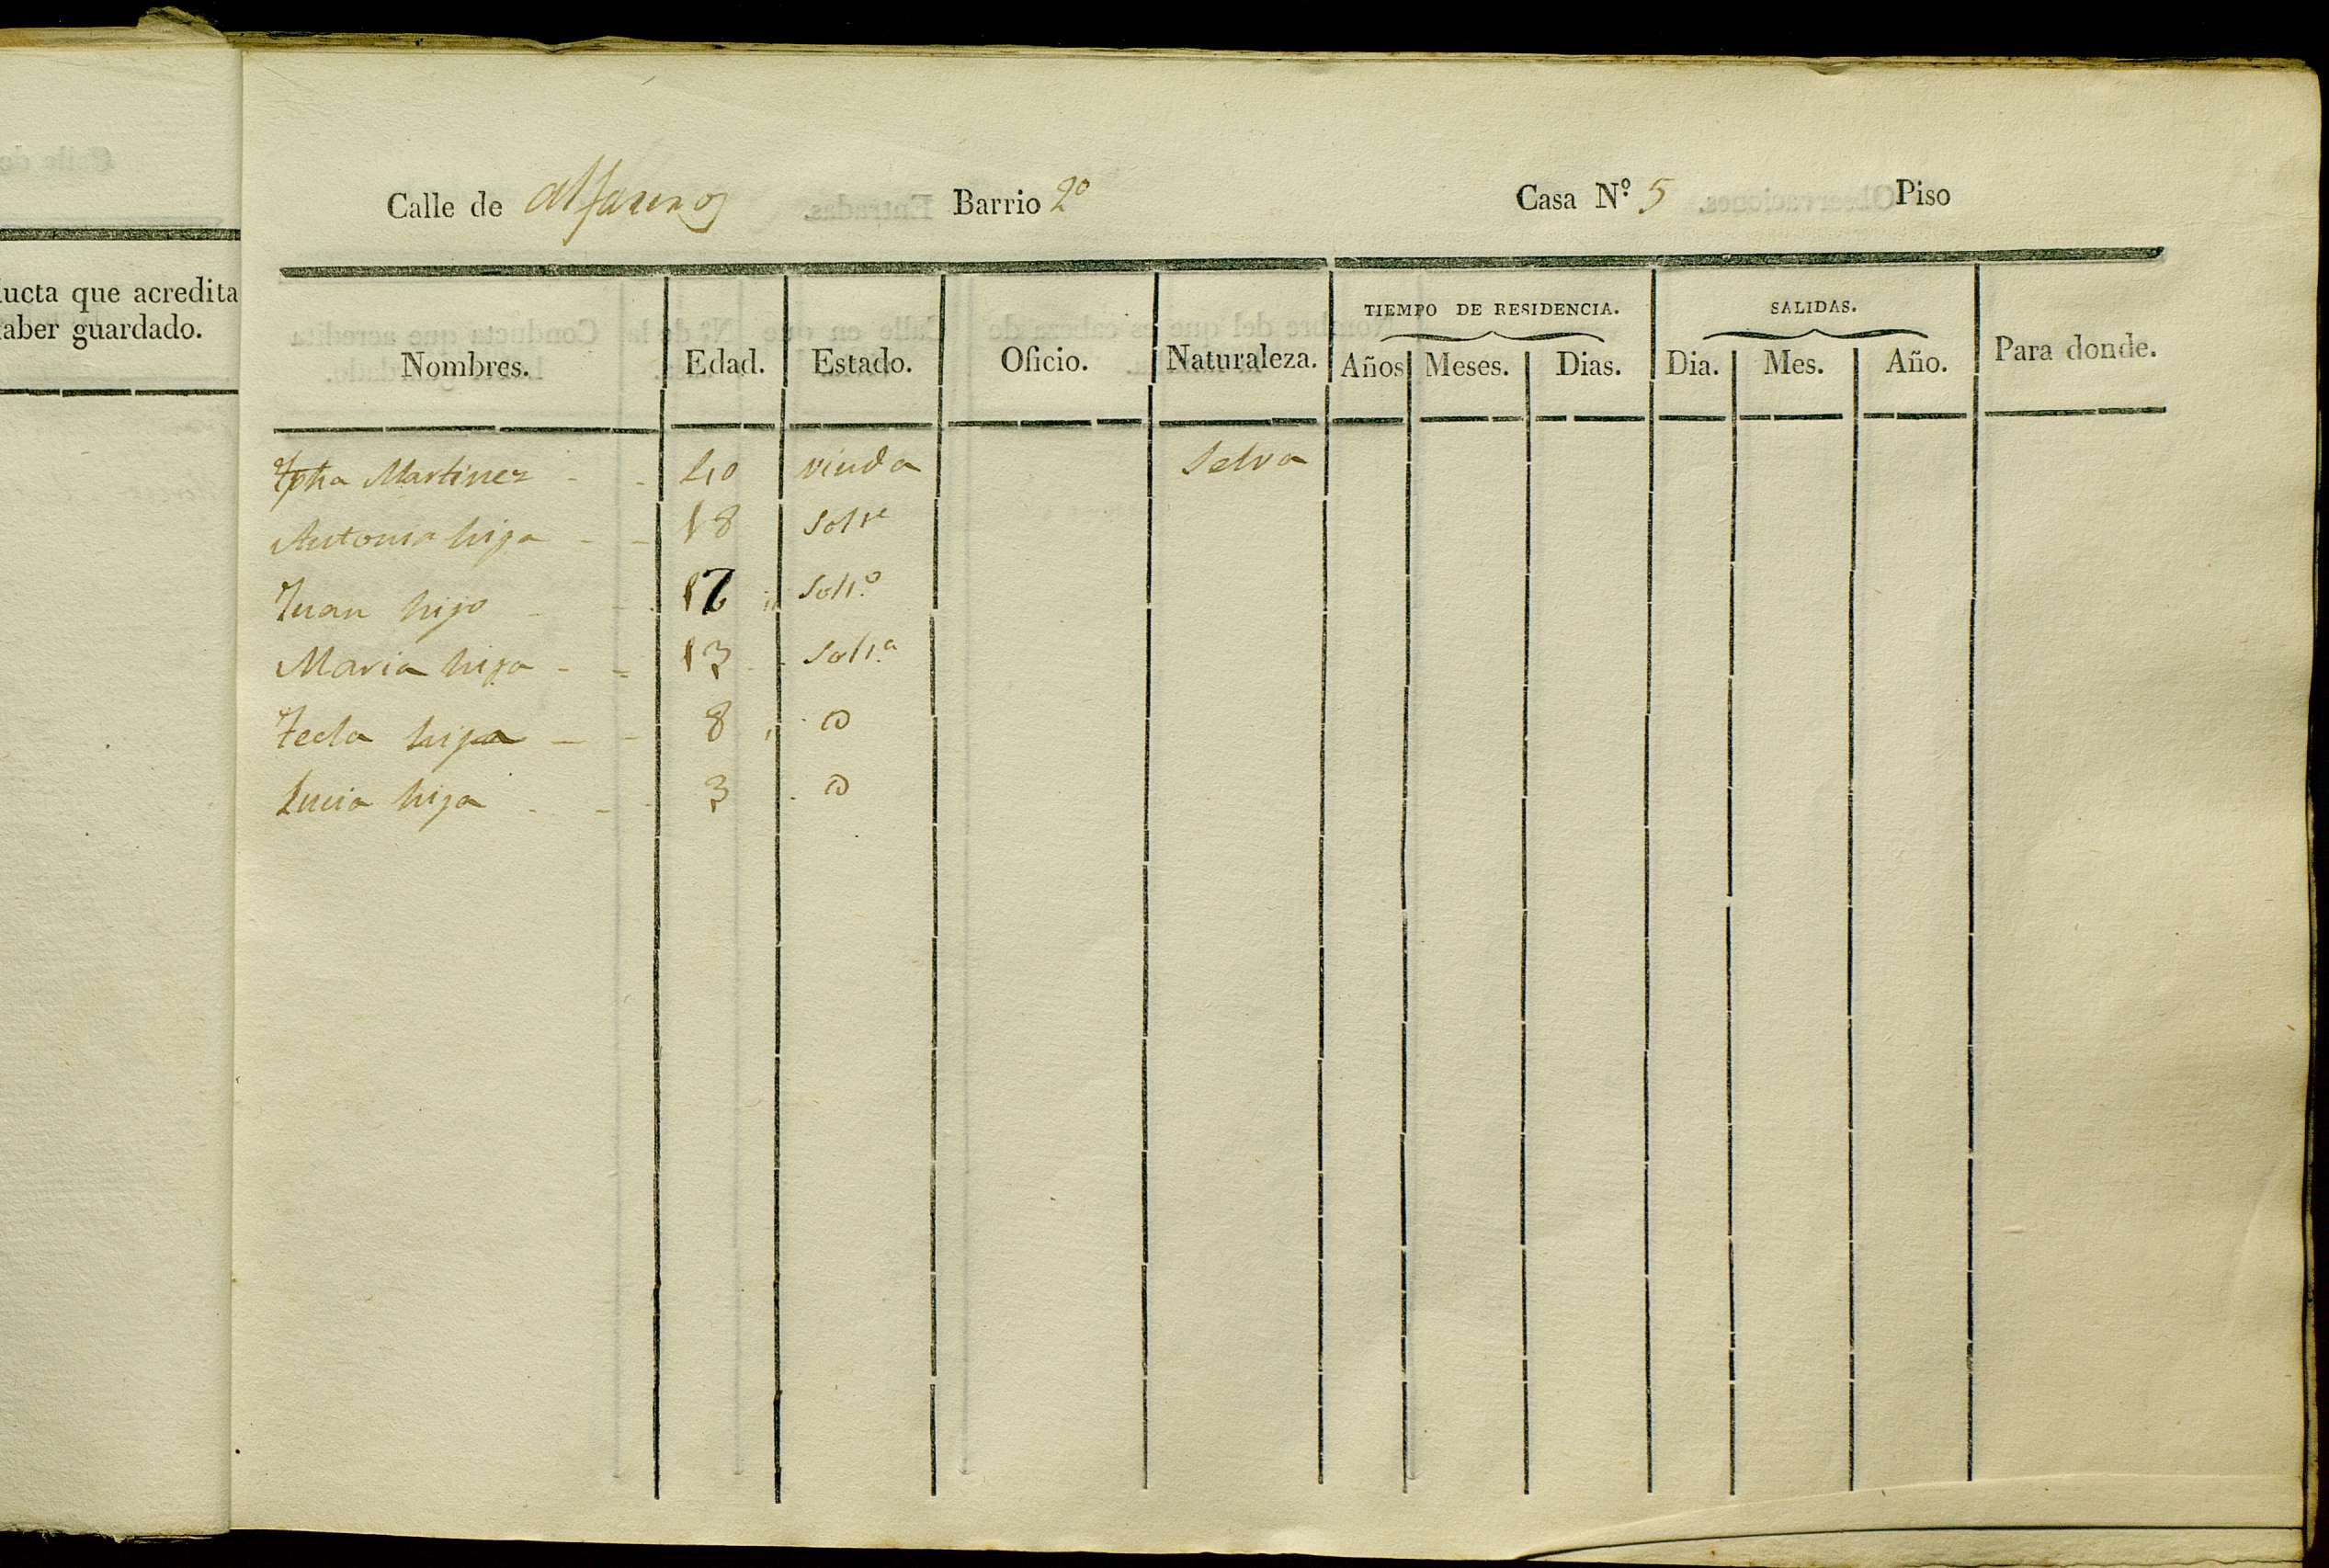 Calle de Alfareros Barrio 2º Casa Nº 5 Piso
ducta que acredita
haber guardado.
TIEMPO DE RESIDENCIA. SALIDAS.
Nombres. Edad. Estado. Oficio. Naturaleza. Años Meses. Dias. Dia. Mes. Año. Para donde.
Martinez 40 viuda Selva
Antonia hija 18 Solt
Juan hijo 16 Solt.º
Maria hija 13 Solt.ª
Tecla hija 8
Lucia hija 3